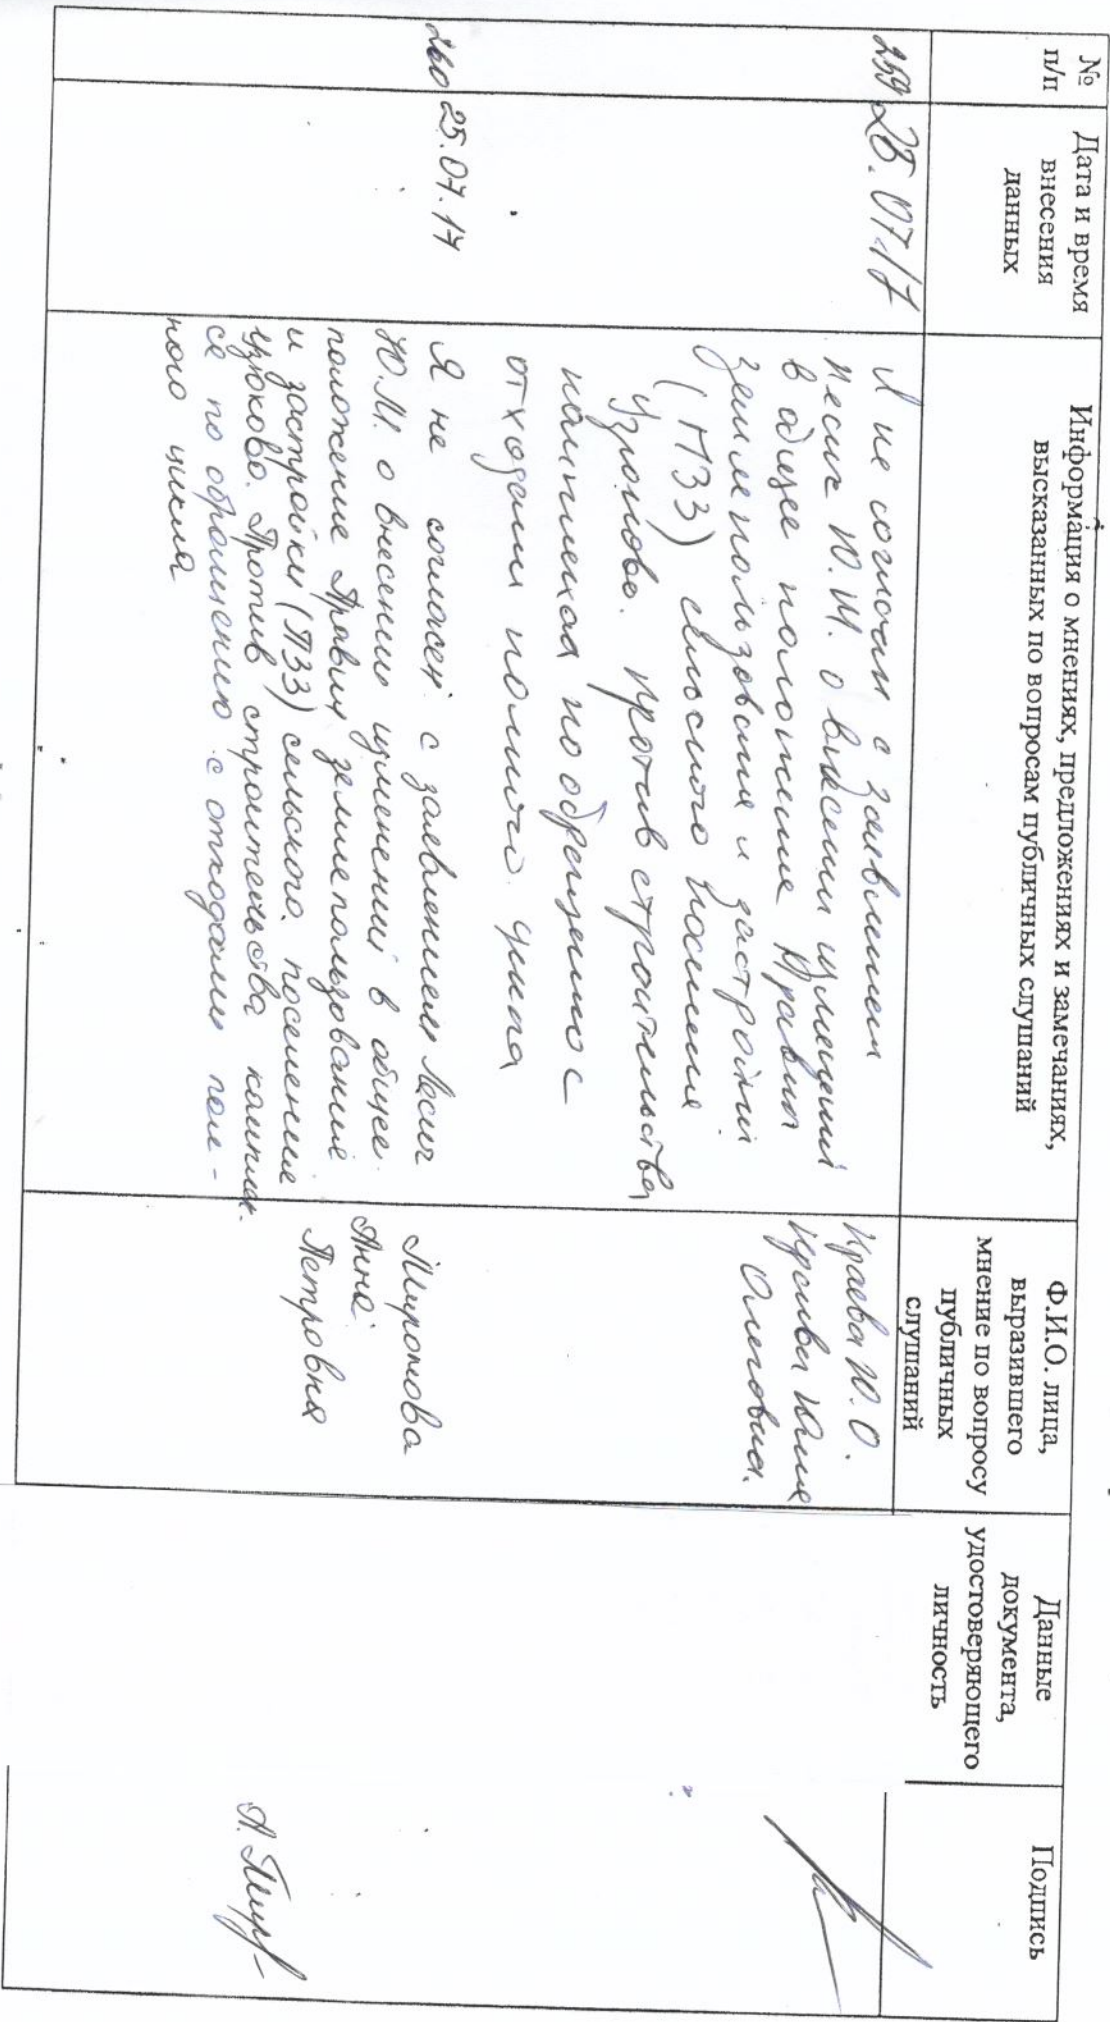 №
п/п
Дата и время
внесения
данных
Информация о мнениях, предложениях и замечаниях,
высказанных по вопросам публичных слушаний
Ф.И.О. лица,
выразившего
мнение по вопросу
публичных
слушаний
Данные
документа,
удостоверяющего
личность
Подпись
259
25.07.17
Я не согласен с заявлением
Лесик Ю.М. о внесении изменений
в общее положение Правил
землепользования и застройки
(ПЗЗ) сельского поселения
Узюково. Против строительства
комплекса по обращению с
отходами полного цикла
Краева Ю.О.
Краева Юлия
Олеговна.
260
25.07.17
Я не согласен с заявлением Лесик
Ю.М. о внесению изменений в общее
положение Правил землепользование
и застройки (ПЗЗ) сельского поселение
Узюково. Против строительства комплек-
са по обращению с отходами пол-
ного цикла
Анна
Петровна